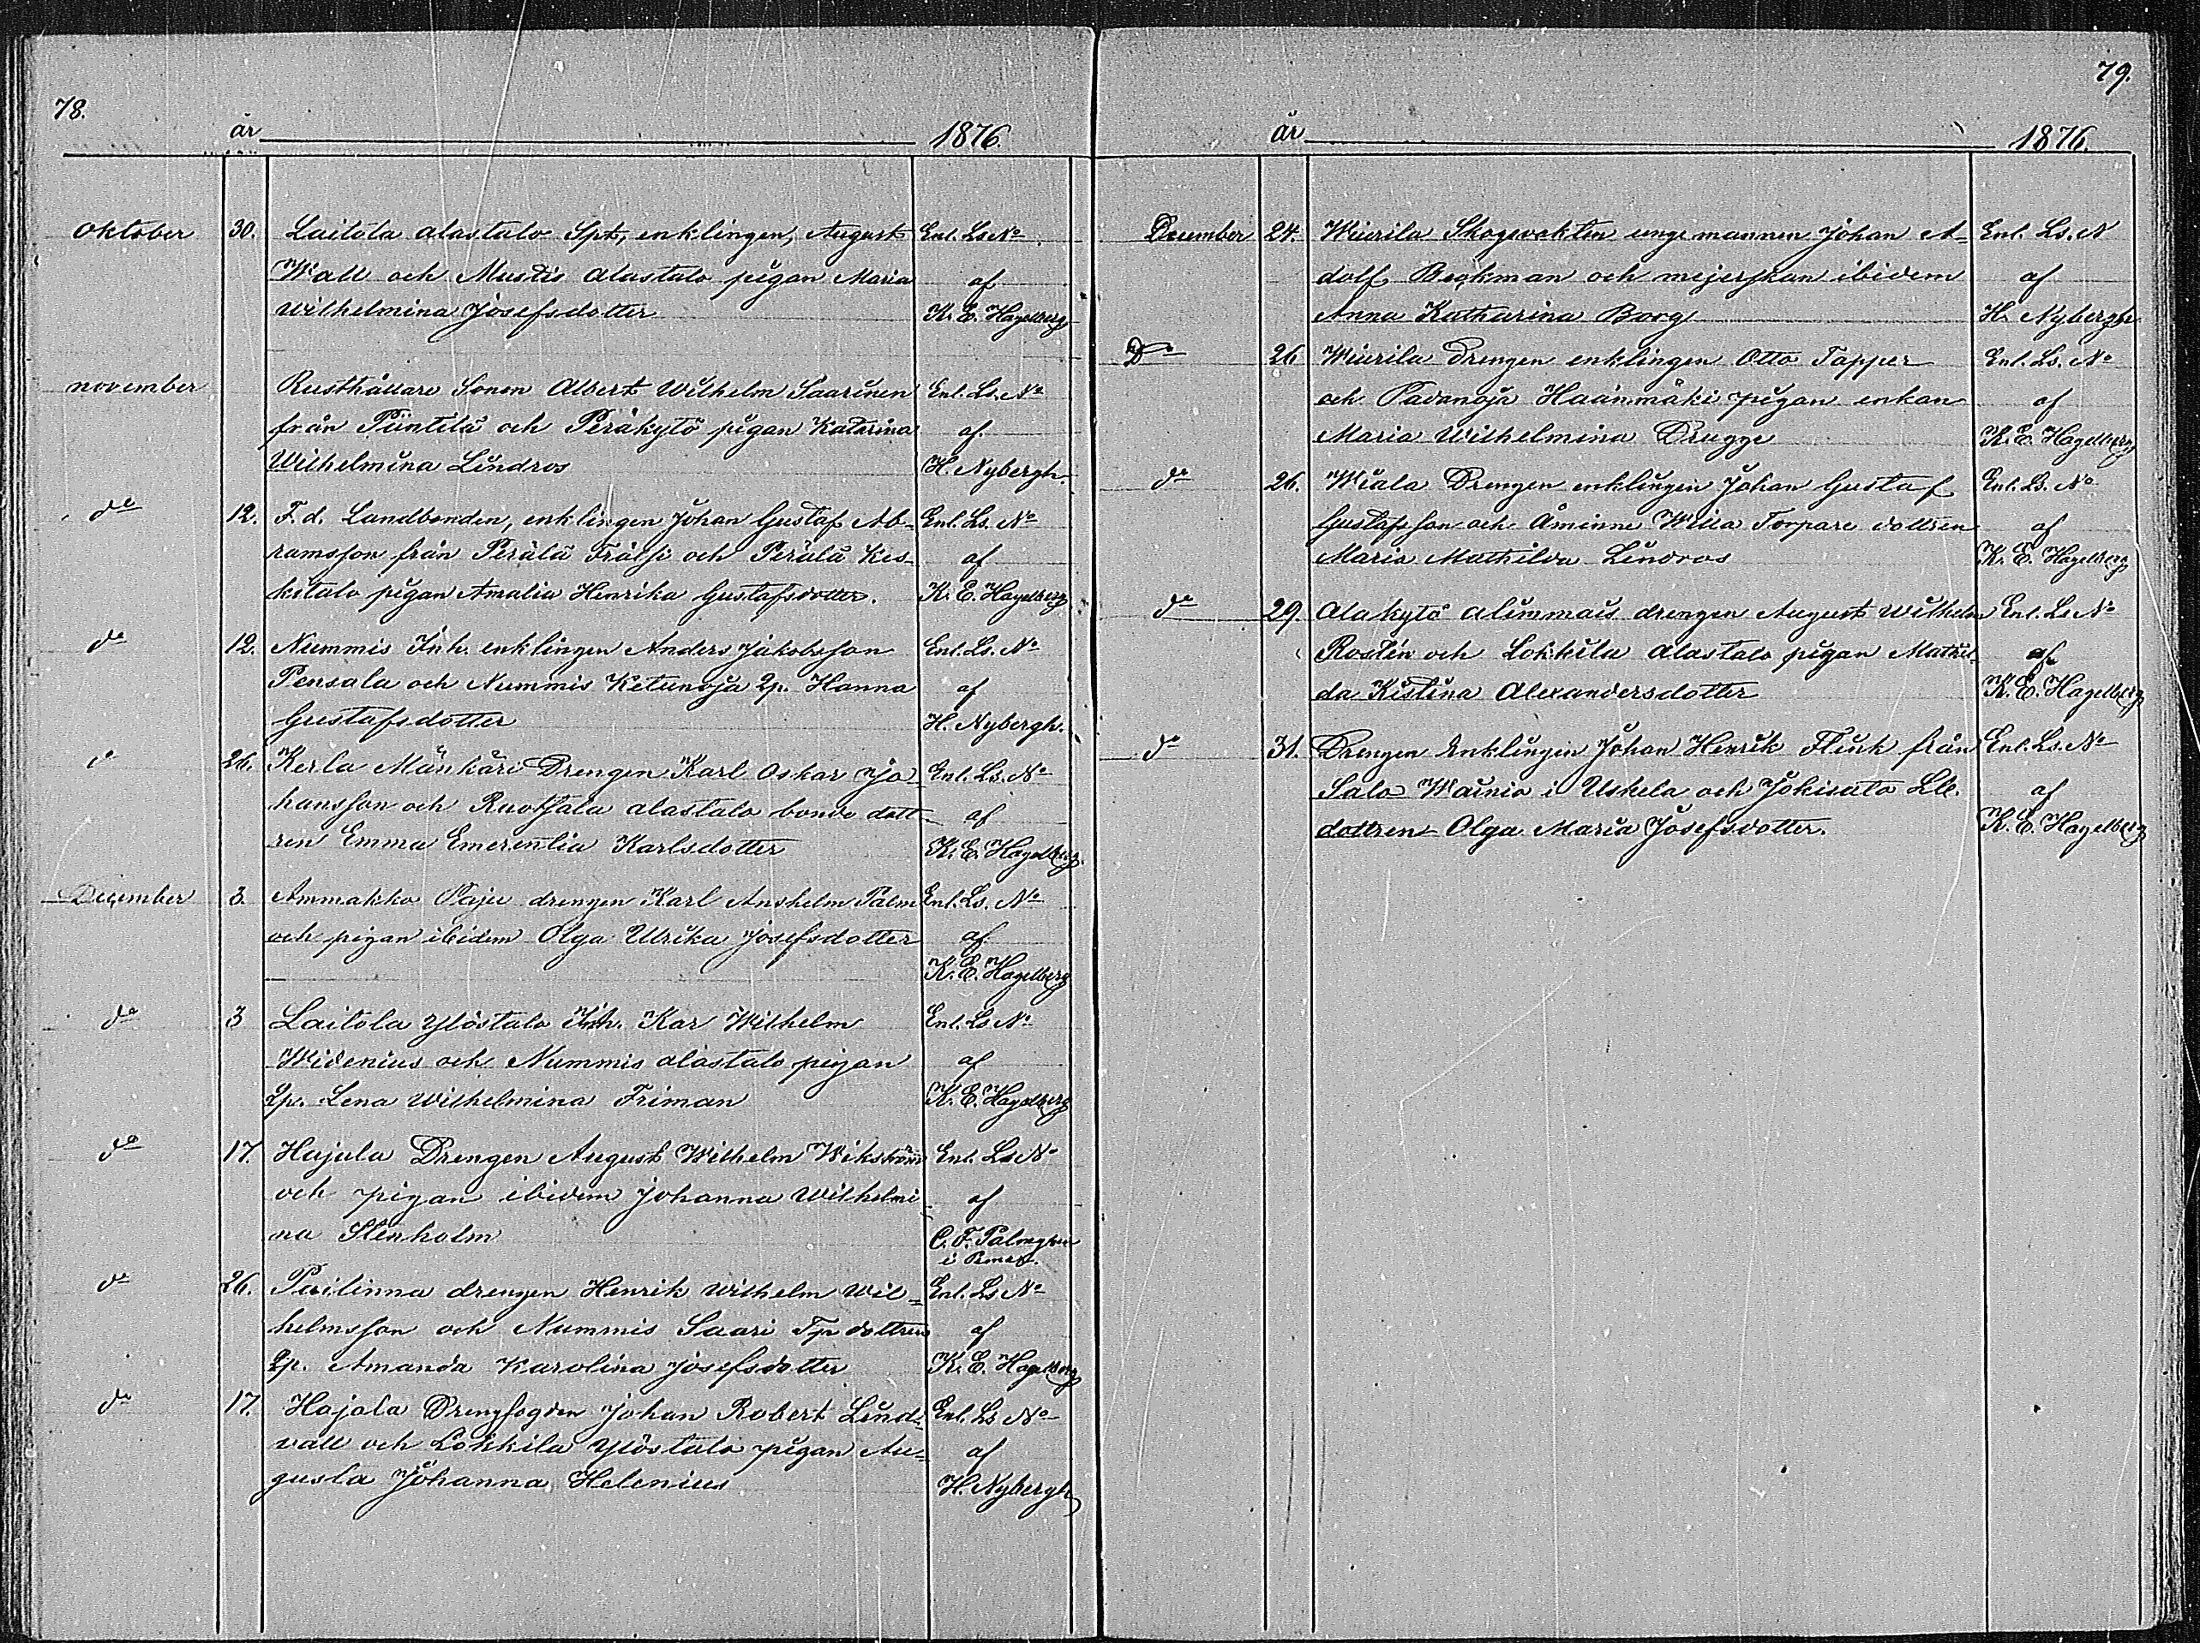 78.
år 1876.
Oktober 30. Laitola alastalo Spt, enklingen, August Enl. Ls No
Wall och Mustis alastalo pigan Maria af
Wilhelmina Josefsdotter K. E. Hagelberg
november Rusthållare Sonen Albert Wilhelm Saarinen Enl. Ls. No
från Pintilä och Peräkytö pigan Katarina af
Wilhelmina Lindros H. Nybergh.
do 12. F. d. Landbonden, enklingen Johan Gustaf Ab- Enl. Ls. No
ramsson från Perälä Frälsi och Perälä Kes- af
kitalo pigan Amalia Henrika Gustafsdotter. K. E. Hagelberg
do 12. Nummis Inh. enklingen Anders Jakobsson Enl. Ls. No
Pensala och Nummis Ketunoja 2p. Hanna af
Gustafsdotter H. Nybergh.
do 26. Kerla Märkäri Drengen Karl Oskar Jo- Enl. Ls. No
hansson och Ruotsala alastalo bonde dott- af
ren Emma Emerentia Karlsdotter K. E. Hagelberg.
December 3. Ammakko Paju drengen Karl Anshelm Palm Enl. Ls. No
och pigan ibidem Olga Ulrika Josefsdotter af
K. E. Hagelberg
do 3 Laitola Ylöstalo Inh. Kar Wilhelm Enl. Ls No
Widenius och Nummis alastalo pigan af
2p. Lena Wilhelmina Friman K. E. Hagelberg
do 17. Hajala Drengen August Wilhelm Wikström Enl. Ls No
och pigan ibidem Johanna Wilhelmi- af
na Stenholm C. F. Palmgren
i
do 26. Pailinna drengen Henrik Wilhelm Wil= Enl. Ls No
helmsson och Nummis Saari Tp dottren af
2p. Amanda Karolina Josefsdotter K. E. Hagelberg
do 17. Hajala Drengfogden Johan Robert Lind- Enl. Ls No
vall och Lokkila Ylöstalo pigan Au= af
gusta Johanna Helenius H. Nybergh
79.
år 1876.
December 24. Wiurila Skogvakten unge mannen Johan A= Enl. Ls. N
dolf Beckman och mejerskan ibidem af
Anna Katharina Borg H. Nybergh
Do 26 Wiurila Drengen enklingen Otto Tapper Enl. Ls. No
och Pavanoja Haänmäki pigan enkan af
Maria Wilhelmina Drugge K. E. Hagelberg
do 26. Wiala Drengen enklingen Johan Gustaf Enl. Ls. No
Gustafsson och Åminne Torpare dottren af
Maria Mathilda Lindros K. E. Hagelberg
do 29. Alakytö Alimmais drengen August Wilhelm Enl. Ls No
Rostin och Lokkila alastalo pigan Mathil- af
da Kistina Alexandersdotter K. E. Hagelberg
do 31. Drengen Enklingen Johan Henrik Flink från Enl. Ls. No
Salo Wainio i Uskela och Jokisalo af
dottren Olga Maria Josefsdotter. K. E. Hagelberg